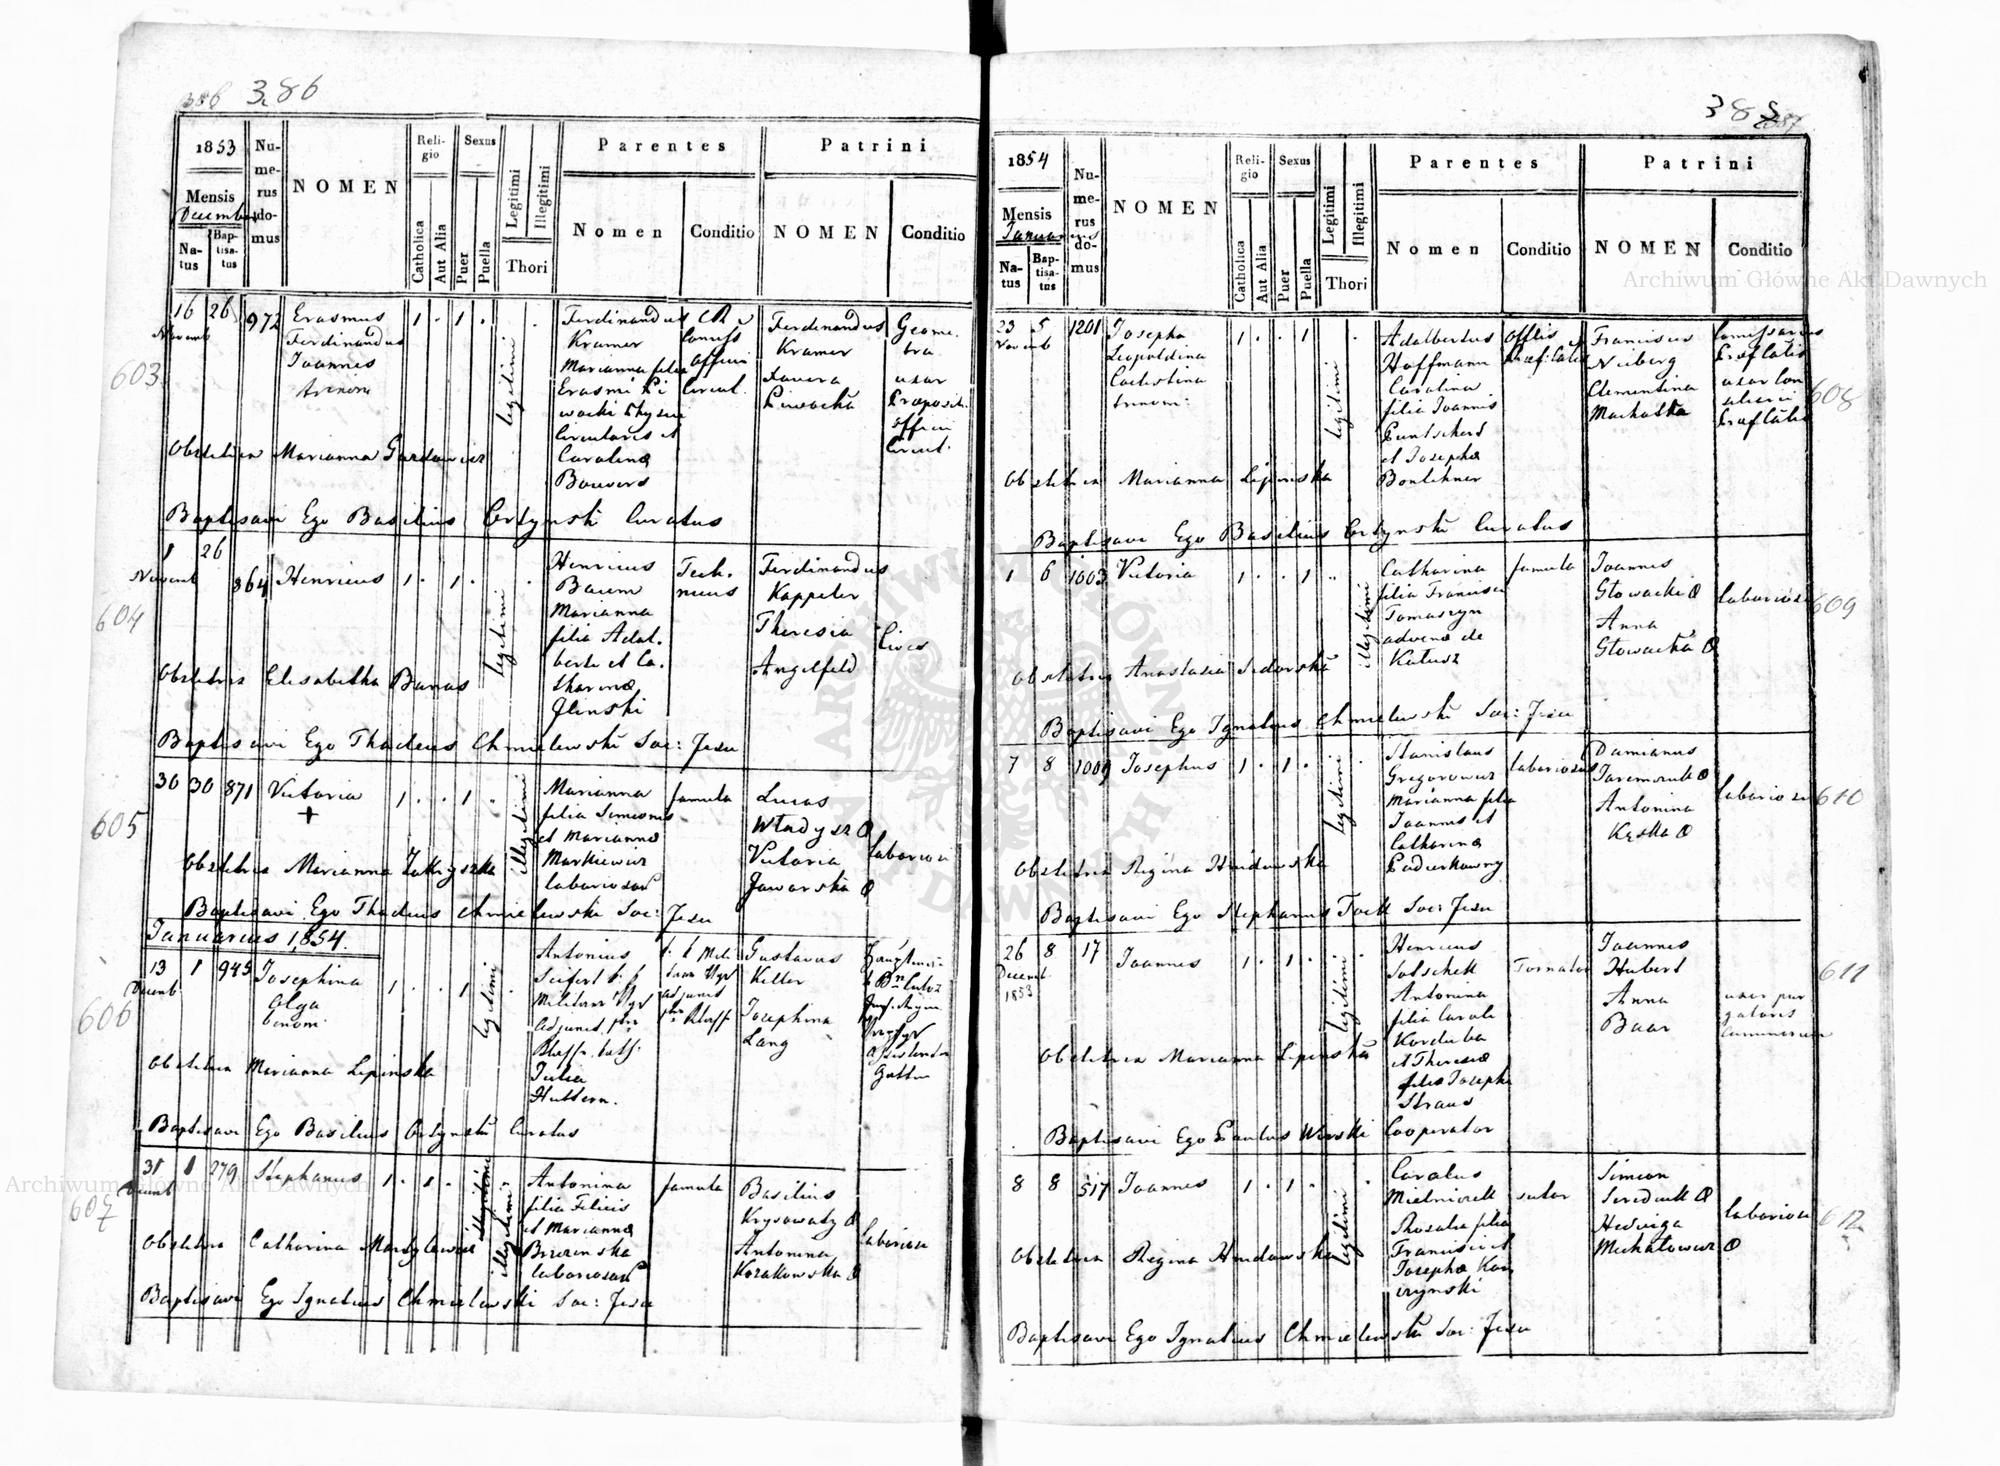 386 386
1853
Mensis
Decembr
Na-
tus
Bap-
tisa-
tus
Nu-
me-
rus
do-
mus
NOMEN
Reli-
gio
Catholica
Aut Alia
Sexus
Puer
Puella
Legitimi
Illegitimi
Thori
Parentes
Nomen
Conditio
Patrini
NOMEN
Conditio
603
16 26 972
Novemb
Erasmus
Ferdinandus
Joannes
trinom
1 . 1 .
legitimi
Ferdinandus
Kramer
Marianna filia
Erasmi Pi
wocki Physici
Circularis et
Carolina
Bouvers
Comiss
officii
Circul.
Ferdinandus
Kramer
Xavera
Piwocka
Geome-
tra
uxor
Praeposit.
officii
Circul.
Obstetrix Marianna Gurdowicz
Baptisavi Ego Basilius Ortynski Curatus
604
1 26
Novemb
864 Henricus 1 . 1 .
legitimi
Henricus
Baum
Marianna
filia Adal-
berti et Ca-
tharina
Jlinski
Tech-
nicus
Ferdinandus
Kappeler
Theresia
Angelfeld
Cives
Obstetrix Elisabetha Banas
Baptisavi Ego Thadeus Chmielewski Soc: Jesu
605
30 30 871 Victoria 1 . . 1 .
+
illegitimi
Marianna
filia Simeonis
et Marianna
Markiewicz
laboriosor
famula
Lucas
Wladysz
Victoria
Jaworska
laboriosi
Obstetrix Marianna Zakryszka
Baptisavi Ego Thadeus Chmielewski Soc: Jesu
Januarius 1854.
606
13 1 945
Decemb
Josephina
Olga
binom:
1 . . 1
legitimi
Antonius
Seifert
Julia
Huttern.
Gustavus
Keller
Josephina
Lang
Obstetrix Marianna Lipinska
Baptisavi Ego Basilius Ortynski Curatus
607
31 1 279 Stephanus 1 . 1 .
Decemb
illegitimi
Antonina
filia Felicis
et Marianna
Brzezinska
laboriosor
famula
Basilius
Krysowaty
Antonina
Kozakowska
laboriosi
Obstetrix Catharina Martylewicz
Baptisavi Ego Ignatius Chmielewski Soc: Jesu
388 387
1854
Mensis
Januarius
Na-
tus
Bap-
tisa-
tus
Nu-
me-
rus
do-
mus
NOMEN
Reli-
gio
Catholica
Aut Alia
Sexus
Puer
Puella
Legitimi
Illegitimi
Thori
Parentes
Nomen
Conditio
Patrini
NOMEN
Conditio
608
23 5 1201
Novemb
Josepha
Leopoldina
Coelestina
trinom:
1 . . 1
legitimi
Adalbertus
Hoffmann
Carolina
filia Joannis
Puntschert
et Josepha
Bonlehner
Franciscus
Nieberg
Clementina
Machalka
Obstetrix Marianna Lipinska
Baptisavi Ego Basilius Ortynski Curatus
609
1 6 1003 Victoria 1 . . 1
illegitimi
Catharina
filia Francisci
Tomaszyn
advena de
Kalusz
famula
Joannes
Glowacki
Anna
Glowacka
laboriosi
Obstetrix Anastasia Sidorska
Baptisavi Ego Ignatius Chmielewski Soc: Jesu
610
7 8 1009 Josephus 1 . 1 .
legitimi
Stanislaus
Gregorowicz
Marianna filia
Joannis et
Catharina
laboriosus
Damianus
Jaremczuk
Antonina
Kęska
laboriosi
Obstetrix Regina Hnidowska
Baptisavi Ego Stephanus Jock Soc: Jesu
611
26 8 17 Joannes 1 . 1 .
Decemb.
1853
legitimi
Henricus
Sotschek
Antonina
filia Caroli
Korduba
et Theresia
filia Josephi
Straus
Tornator
Joannes
Hubert
Anna
Baar
uxor pur
gatoris
Caminorum
Obstetrix Marianna Lipinska
Baptisavi Ego Paulus Wirski Cooperator
612
8 8 517 Joannes 1 . 1 .
legitimi
Carolus
Mielniczek
Rosalia filia
Francisci et
Josepha Kon
czynski
sutor
Simeon
Serediuk
Hedviga
Michalowicz
laboriosi
Obstetrix Regina Hnidowska
Baptisavi Ego Ignatius Chmielewski Soc: Jesu
Archiwum Główne Akt Dawnych
Archiwum Główne Akt Dawnych
ARCHIWUM GŁÓWNE AKT DAWNYCH